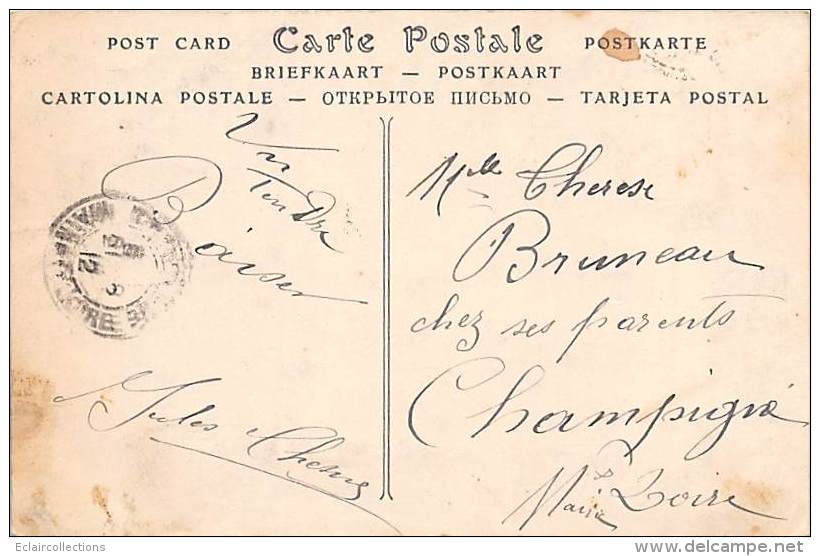 POST CARD Carte Postale POSTKARTE
BRIEFKAART — POSTKAART
CARTOLINA POSTALE — ОТКРЫТОЕ ПИСЬМО — TARJETA POSTAL
Un
Tendre
Baiser
Jules
Mlle Therese
Bruneau
chez ses parents
Champigné
Maine & Loire
Eclaircollections
www.delcampe.net